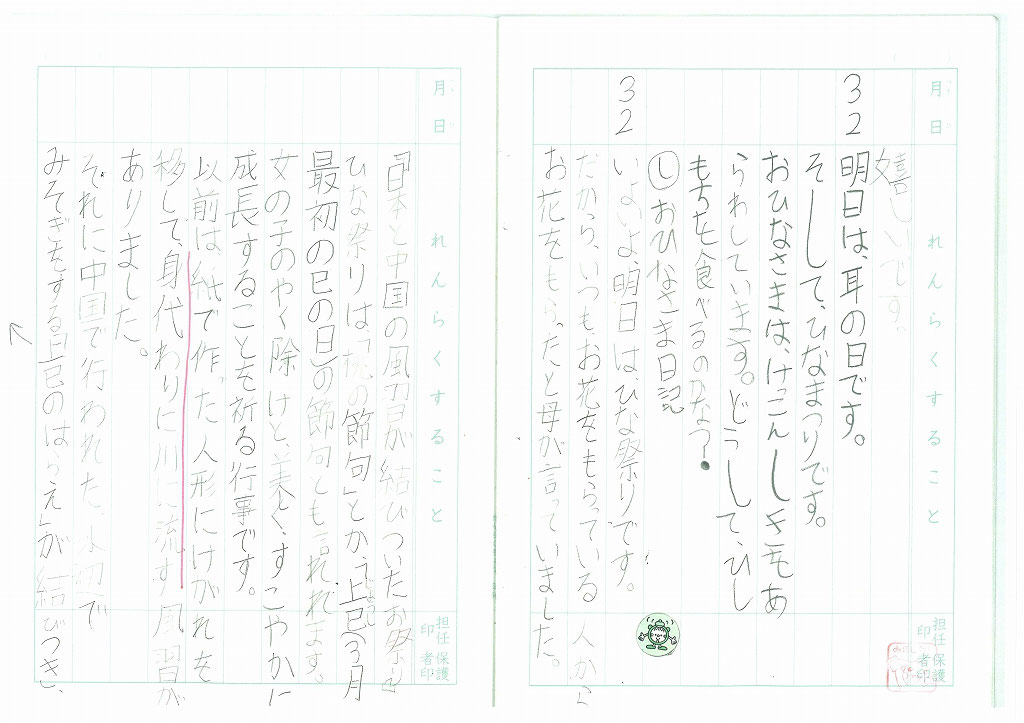 月日 れんらくすること 担任印 保護者印
嬉しいです。
32 明日は、耳の日です。
そして、ひなまつりです。
おひなさまは、けっこんしきをあ
らわしています。どうして、ひし
もちを食べるのかな?
しおひなさま日記
32 いよいよ、明日はひな祭りです。
だから、いつも、お花をもらっている人から
お花をもらったと母が言っていました。
月日 れんらくすること 担任印 保護者印
『日本と中国の風習が結びついたお祭り』
ひな祭りは、「桃の節句」とか、上巳(3月
最初の巳の日)の節句とも言われます。
女の子のやく除けと、美しく、すこやかに
成長することを祈る行事です。
以前は紙で作った人形にけがれを
移して、身代わりに川に流す風習が
ありました。
それに中国で行われた、水辺で
みそぎをする「上巳のはらえ」が結びつき、